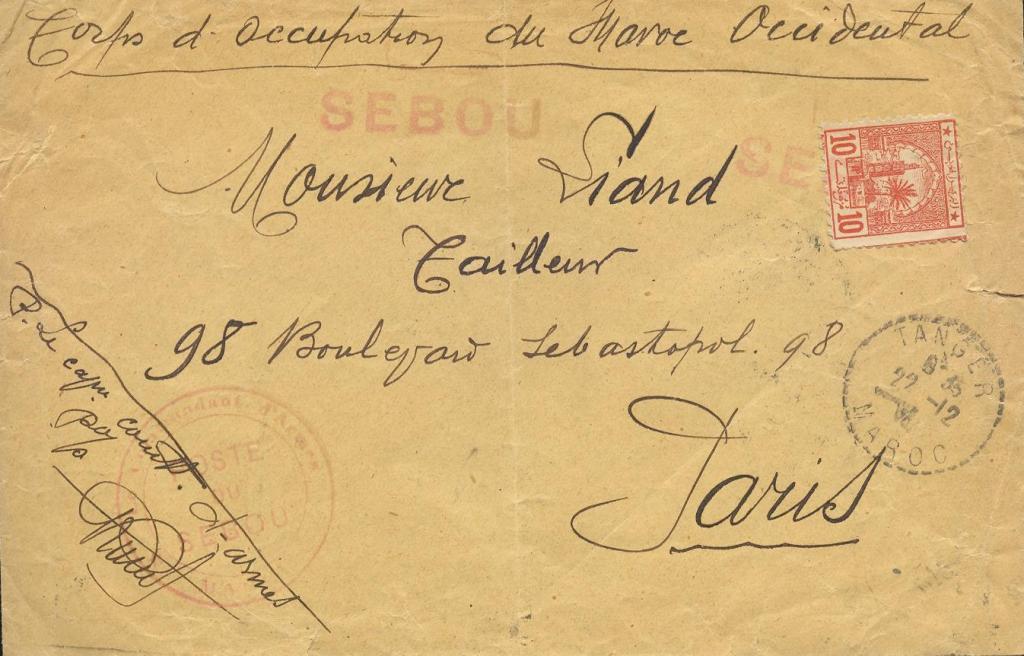 Corps d'occupation du Maroc Occidental
SEBOU
SE
Monsieur Liand
Tailleur
98 Boulevard Sebastopol. 98
Paris
10 10
TANGER
22 -12
MAROC
P. Le capn. comtt. d'armes
POSTE
DU
SEBOU